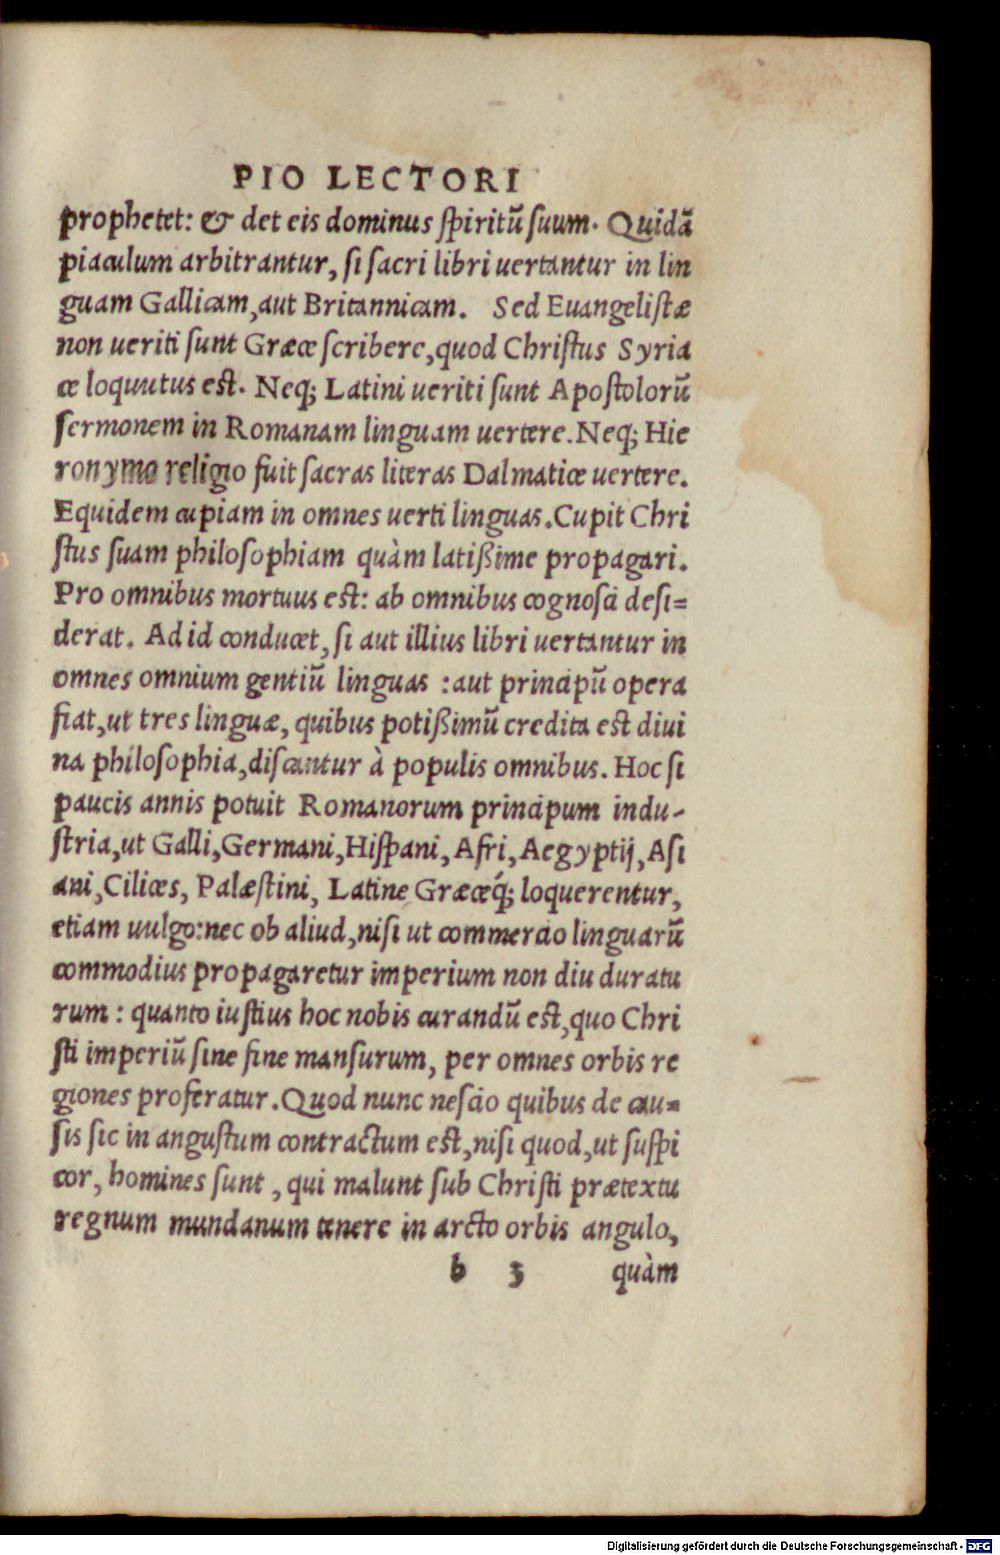 PIO LECTORI
prophetet: & det eis dominus spiritū suum. Quidā
piaculum arbitrantur, si sacri libri uertantur in lin
guam Gallicam, aut Britannicam. Sed Euangelistæ
non ueriti sunt Græce scribere, quod Christus Syria
ce loquutus est. Neq; Latini ueriti sunt Apostolorū
sermonem in Romanam linguam uertere. Neq; Hie
ronymo religio fuit sacras literas Dalmatice uertere.
Equidem cupiam in omnes uerti linguas. Cupit Chri
stus suam philosophiam quàm latißime propagari.
Pro omnibus mortuus est: ab omnibus cognosci desi=
derat. Ad id conducet, si aut illius libri uertantur in
omnes omnium gentiū linguas : aut principū opera
fiat, ut tres linguæ, quibus potißimū credita est diui
na philosophia, discantur à populis omnibus. Hoc si
paucis annis potuit Romanorum principum indu-
stria, ut Galli, Germani, Hispani, Afri, Aegyptij, Asi
ani, Cilices, Palæstini, Latine Græceq́; loquerentur,
etiam uulgo: nec ob aliud, nisi ut commercio linguarū
commodius propagaretur imperium non diu duratu
rum : quanto iustius hoc nobis curandū est, quo Chri
sti imperiū sine fine mansurum, per omnes orbis re
giones proferatur. Quod nunc nescio quibus de cau=
sis sic in angustum contractum est, nisi quod, ut suspi
cor, homines sunt, qui malunt sub Christi prætextu
regnum mundanum tenere in arcto orbis angulo,
b 3 quàm
Digitalisierung gefördert durch die Deutsche Forschungsgemeinschaft - DFG